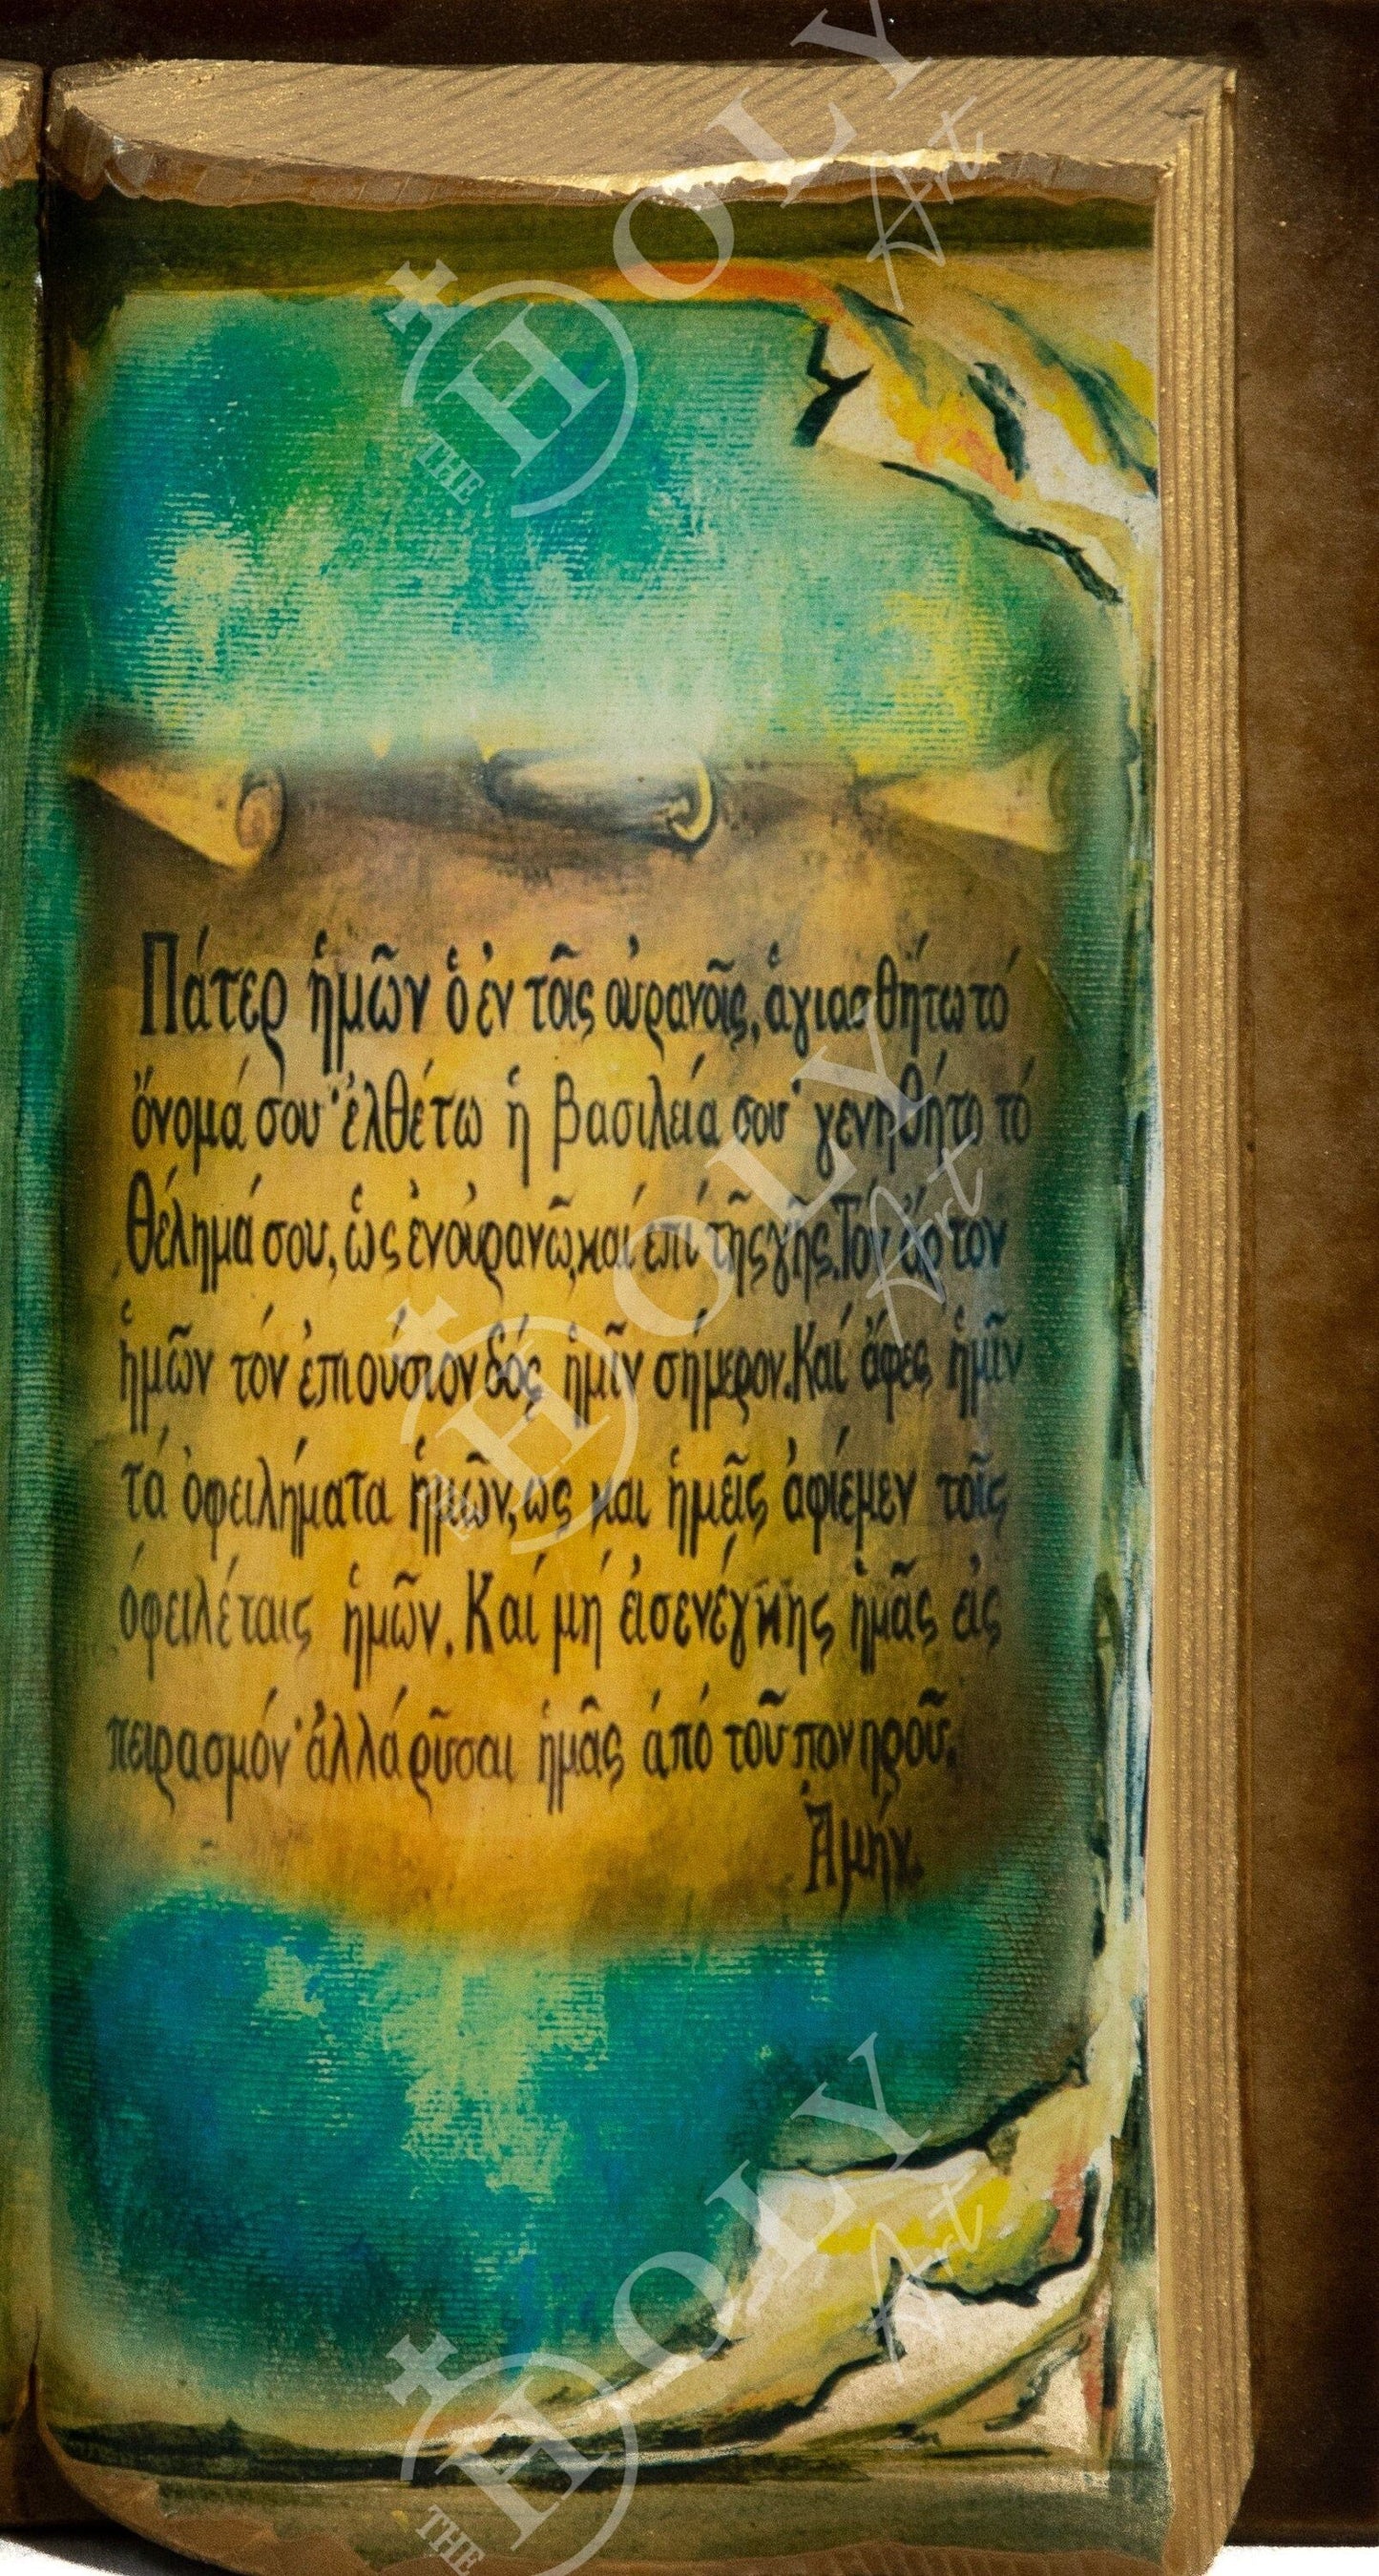 Πάτερ ἡμῶν ὁ ἐν τοῖς οὐρανοῖς, ἁγιασθήτω τό
ὄνομά σου· ἐλθέτω ἡ βασιλεία σου· γενηθήτω τό
θέλημά σου, ὡς ἐν οὐρανῶ, καί ἐπί τῆς γῆς. Τόν ἄρτον
ἡμῶν τόν ἐπιούσιον δός ἡμῖν σήμερον. Καί ἄφες ἡμῖν
τά ὀφειλήματα ἡμῶν, ὡς και ἡμεῖς ἀφίεμεν τοῖς
ὀφειλέταις ἡμῶν. Καί μή εἰσενέγκης ἡμᾶς εἰς
πειρασμόν· ἀλλά ρῦσαι ἡμᾶς ἀπό τοῦ πονηροῦ.
Ἀμήν.
THE HOLY Art
THE HOLY Art
THE HOLY Art